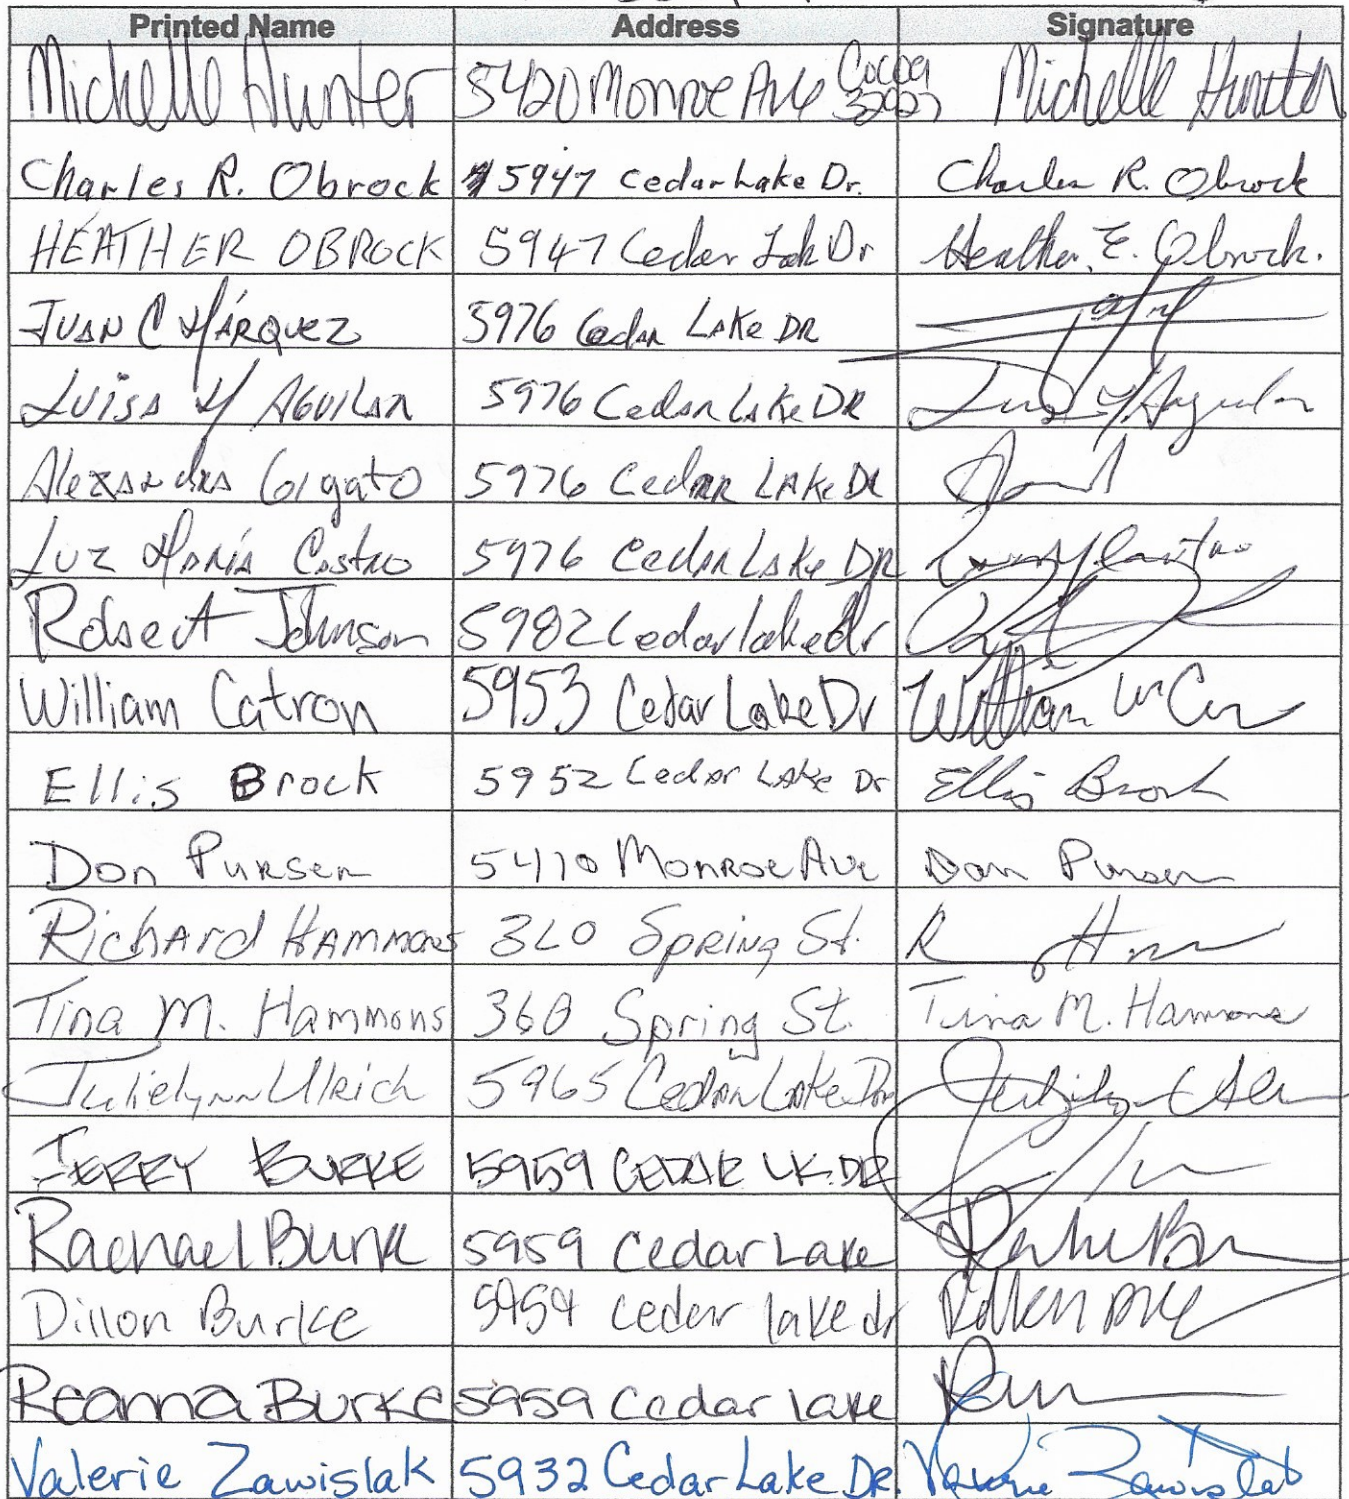 Printed Name Address Signature
Michelle Hunter 5420 Monroe Ave Cocoa 32927 Michelle Hunter
Charles R. Obrock 5947 Cedar Lake Dr. Charles R. Obrock
HEATHER OBROCK 5947 Cedar Lak Dr Heather E. Obrock.
JUAN C MÁRQUEZ 5976 Cedar Lake DR
Luisa Y AGUILAR 5976 Cedar Lake DR Luisa Y Aguilar
Alexandra Gigato 5976 Cedar Lake DR
Luz María Castro 5976 Cedar Lake DR Luz M Castro
Robert Johnson 5982 Cedar lake dr
William Catron 5953 Cedar Lake Dr William
Ellis Brock 5952 Cedar Lake Dr Ellis Brock
Don Pursen 5410 Monroe Ave Don Pursen
Richard Hammons 360 Spring St. R H
Tina M. Hammons 360 Spring St. Tina M. Hammons
Julielynn Ulrich 5965 Cedar Lake Dr
JERRY BURKE 5959 CEDAR LK. DR
Rachael Burke 5959 Cedar Lake
Dillon Burke 5959 cedar lake dr
Reanna Burke 5959 Cedar lake
Valerie Zawislak 5932 Cedar Lake Dr. Valerie Zawislak